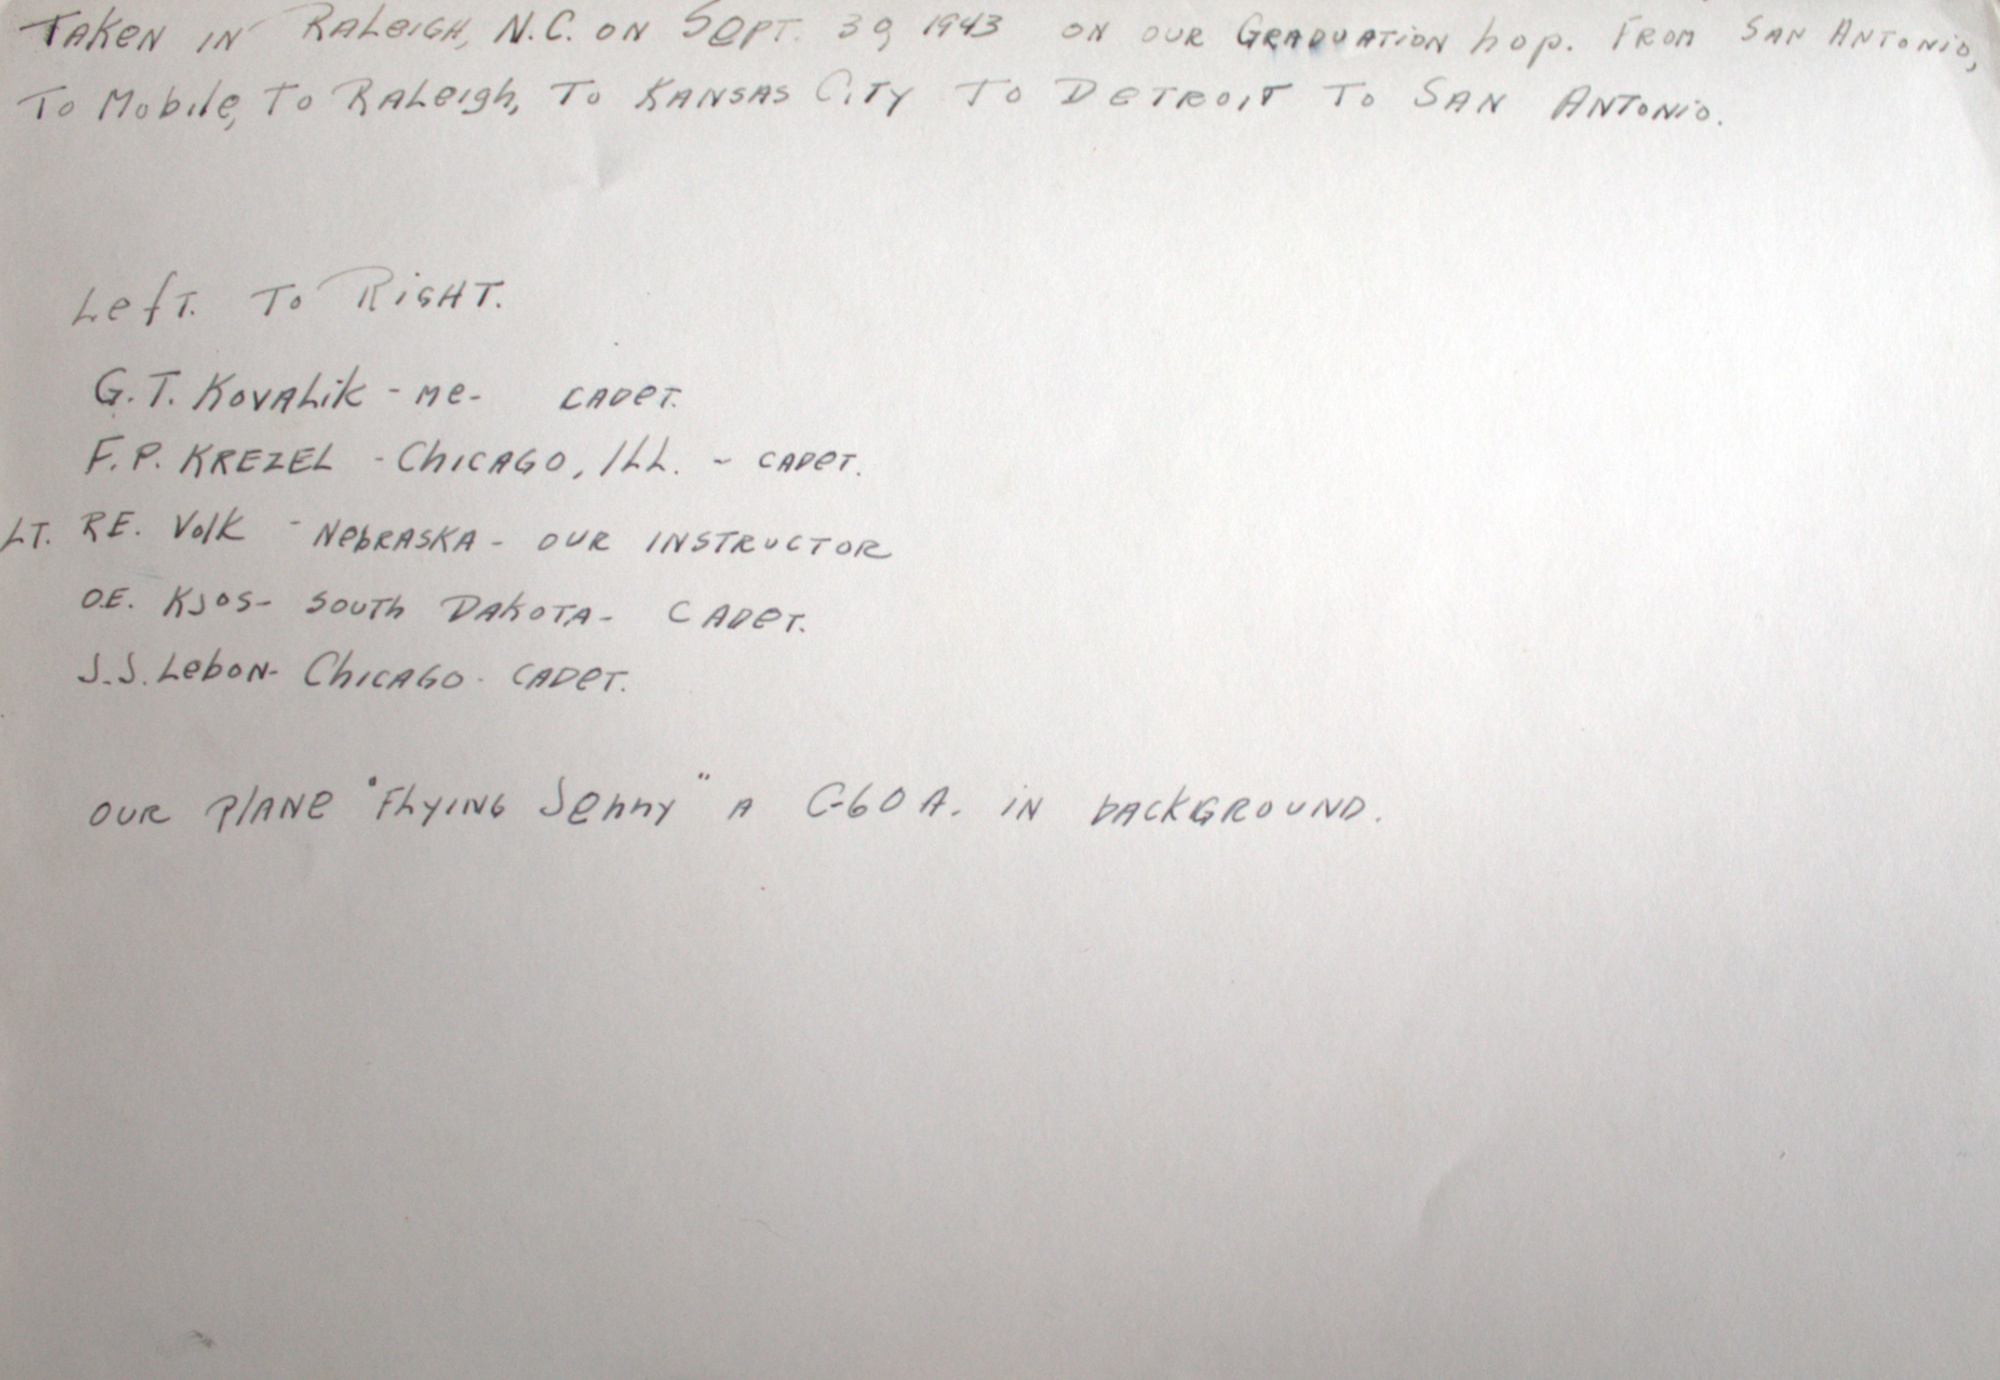 Taken in Raleigh, N.C. on Sept. 30, 1943 on our Graduation hop. From San Antonio,
To Mobile, To Raleigh, To Kansas City To Detroit To San Antonio.
Left. To Right.
G.T. Kovalik - me - cadet.
F.P. KREZEL - Chicago, Ill. - cadet.
LT. R.E. Volk - Nebraska - our instructor
O.E. Kjos - South Dakota - Cadet.
J.J. Lebon - Chicago - cadet.
our plane "Flying Jenny" a C-60A. in background.